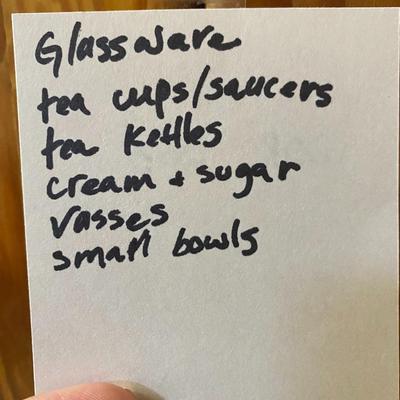 Glassware
tea cups/saucers
tea kettles
cream + sugar
vasses
small bowls